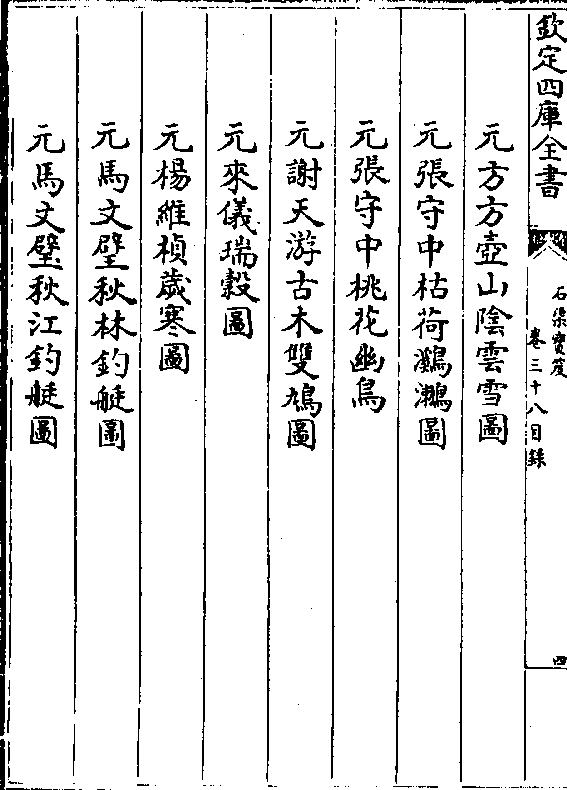 欽定四庫全書
石渠寶笈
卷三十八目錄
四
元方方壺山陰雲雪圖
元張守中枯荷鸂鶒圖
元張守中桃花幽鳥
元謝天游古木雙鳩圖
元來儀瑞穀圖
元楊維楨歲寒圖
元馬文璧秋林釣艇圖
元馬文璧秋江釣艇圖